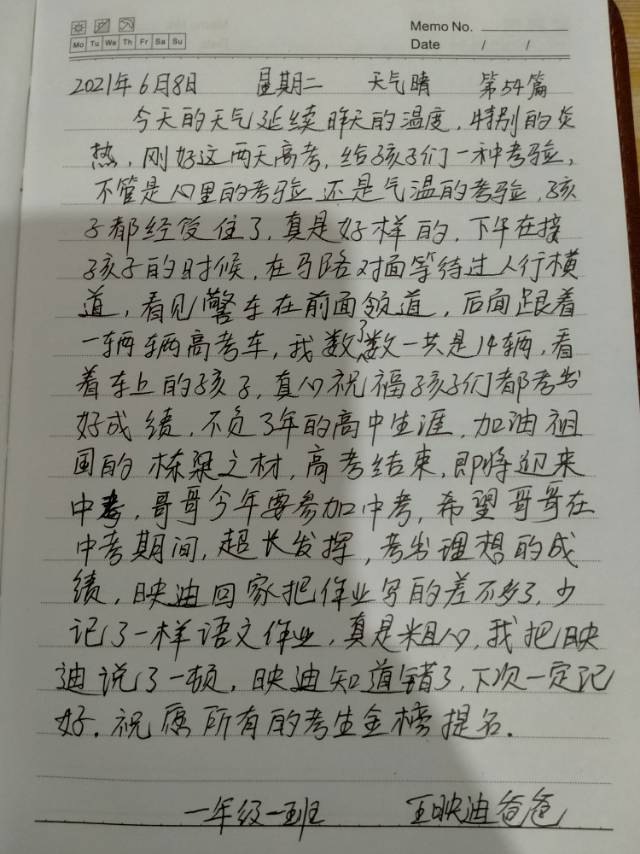 Memo No.
Mo Tu We Th Fr Sa Su
Date / /
2021年6月8日 星期二 天气晴 第54篇
今天的天气延续昨天的温度，特别的炎
热，刚好这两天高考，给孩子们一种考验，
不管是心里的考验还是气温的考验，孩
子都经受住了，真是好样的，下午在接
孩子的时候，在马路对面等待过人行横
道，看见警车在前面领道，后面跟着
一辆辆高考车，我数了数一共是14辆，看
着车上的孩子，真心祝福孩子们都考出
好成绩，不负3年的高中生涯，加油祖
国的栋梁之材，高考结束，即将迎来
中考，哥哥今年要参加中考，希望哥哥在
中考期间，超长发挥，考出理想的成
绩，映迪回家把作业写的差不多了，少
记了一样语文作业，真是粗心，我把映
迪说了一顿，映迪知道错了，下次一定记
好。祝愿所有的考生金榜提名。
一年级一班 王映迪爸爸